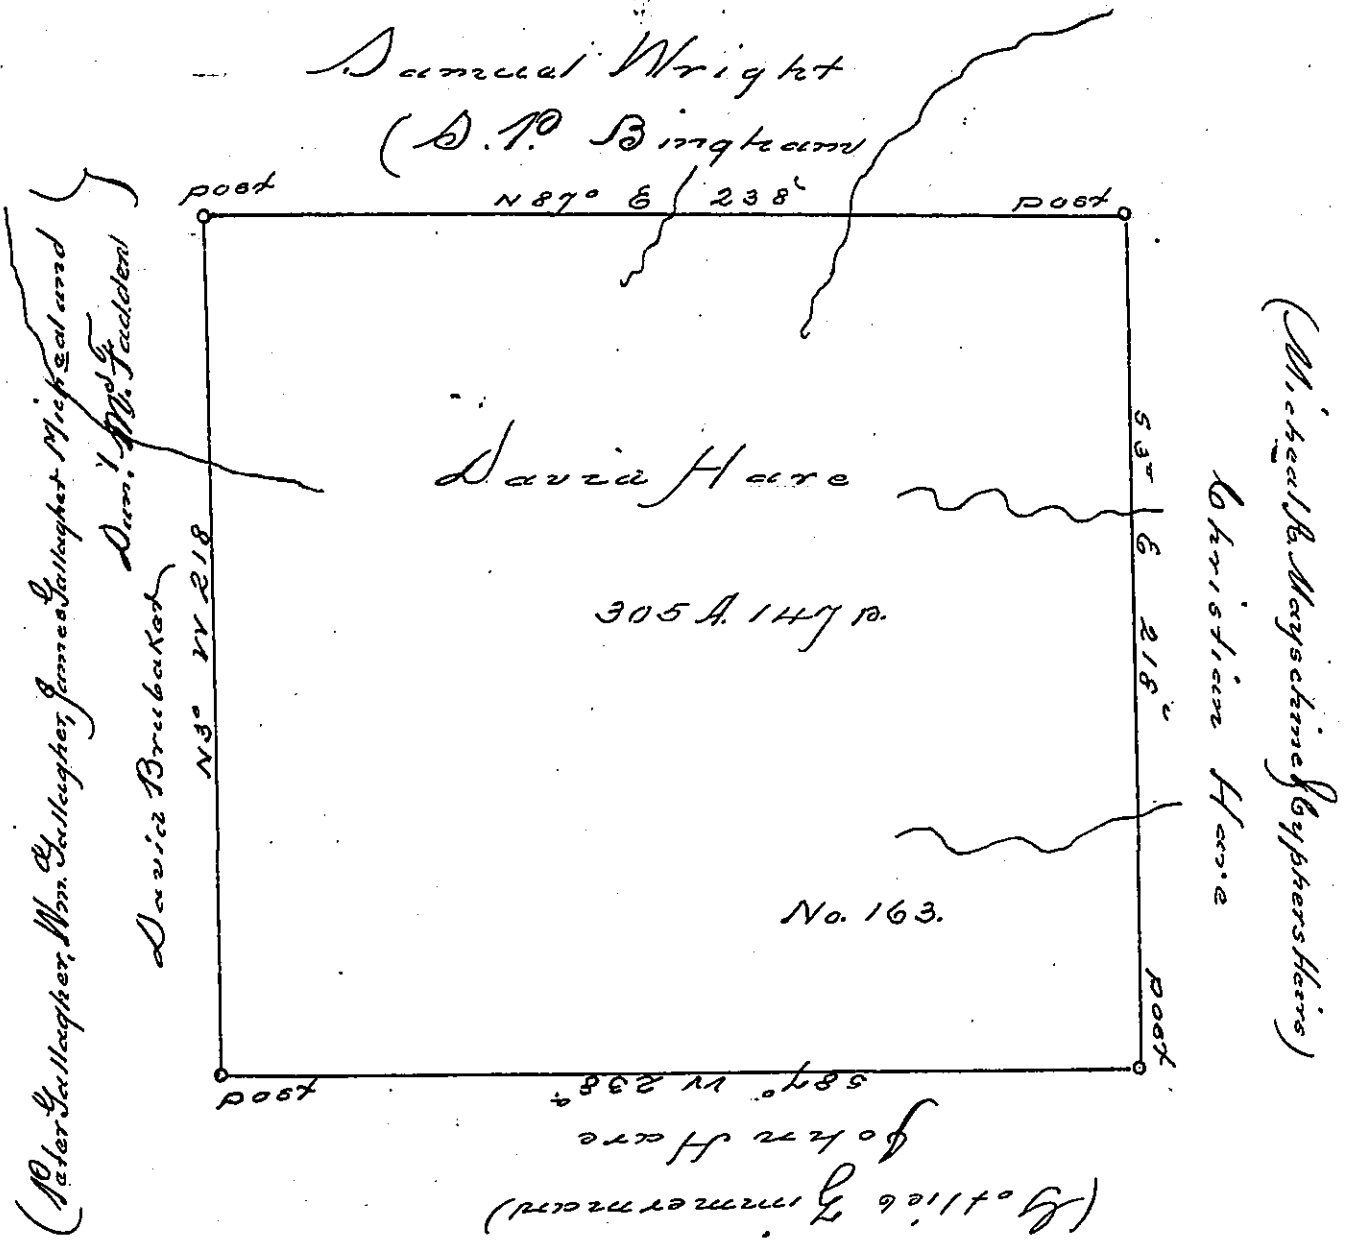 Samual Wright
(S. P. Bingham
post
N 87° E 238
post
(Peter Gallagher, Wm. Gallagher, James Gallagher Micheal and
Dan'l McFadden }
David Brubaker
N 3° W 218
David Hare
305 A. 147 p.
No. 163.
S 3° E 218
Christian Hare
post
post
S 87° W 238
John Hare
(Gotlieb Zimmerman)